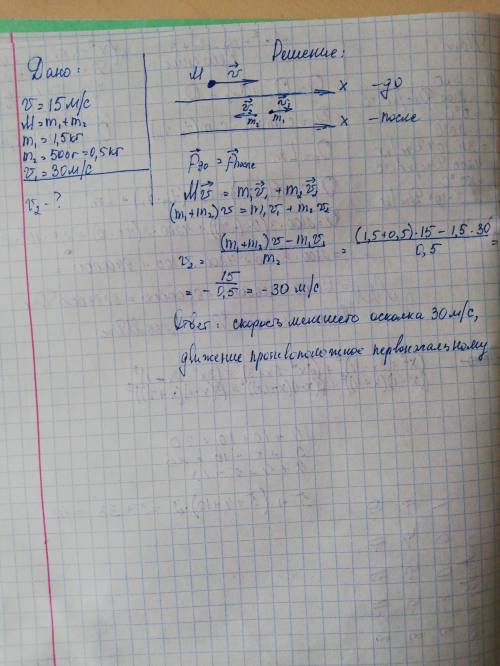 Дано:
v = 15 м/с
M = m₁ + m₂
m₁ = 1,5 кг
m₂ = 500г = 0,5 кг
v₁ = 30 м/с
v₂ - ?
Решение:
M v⃗
x - до
v⃗₂ v⃗₁
m₂ m₁
x - после
p⃗до = p⃗после
Mv⃗ = m₁v⃗₁ + m₂v⃗₂
(m₁+m₂)v = m₁v₁ + m₂v₂
v₂ = ((m₁+m₂)v - m₁v₁)/m₂ = ((1,5+0,5)·15 - 1,5·30)/0,5 =
= - 15/0,5 = -30 м/с
Ответ: скорость меньшего осколка 30 м/с,
движение противоположное первоначальному